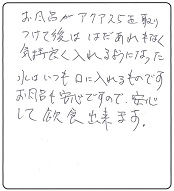 お風呂がアクアス5を取り
つけて後は はだあれもなく
気持良く入れるようになった
水はいつも口に入れるものです
お風呂も安心ですので、安心
して飲食出来ます。